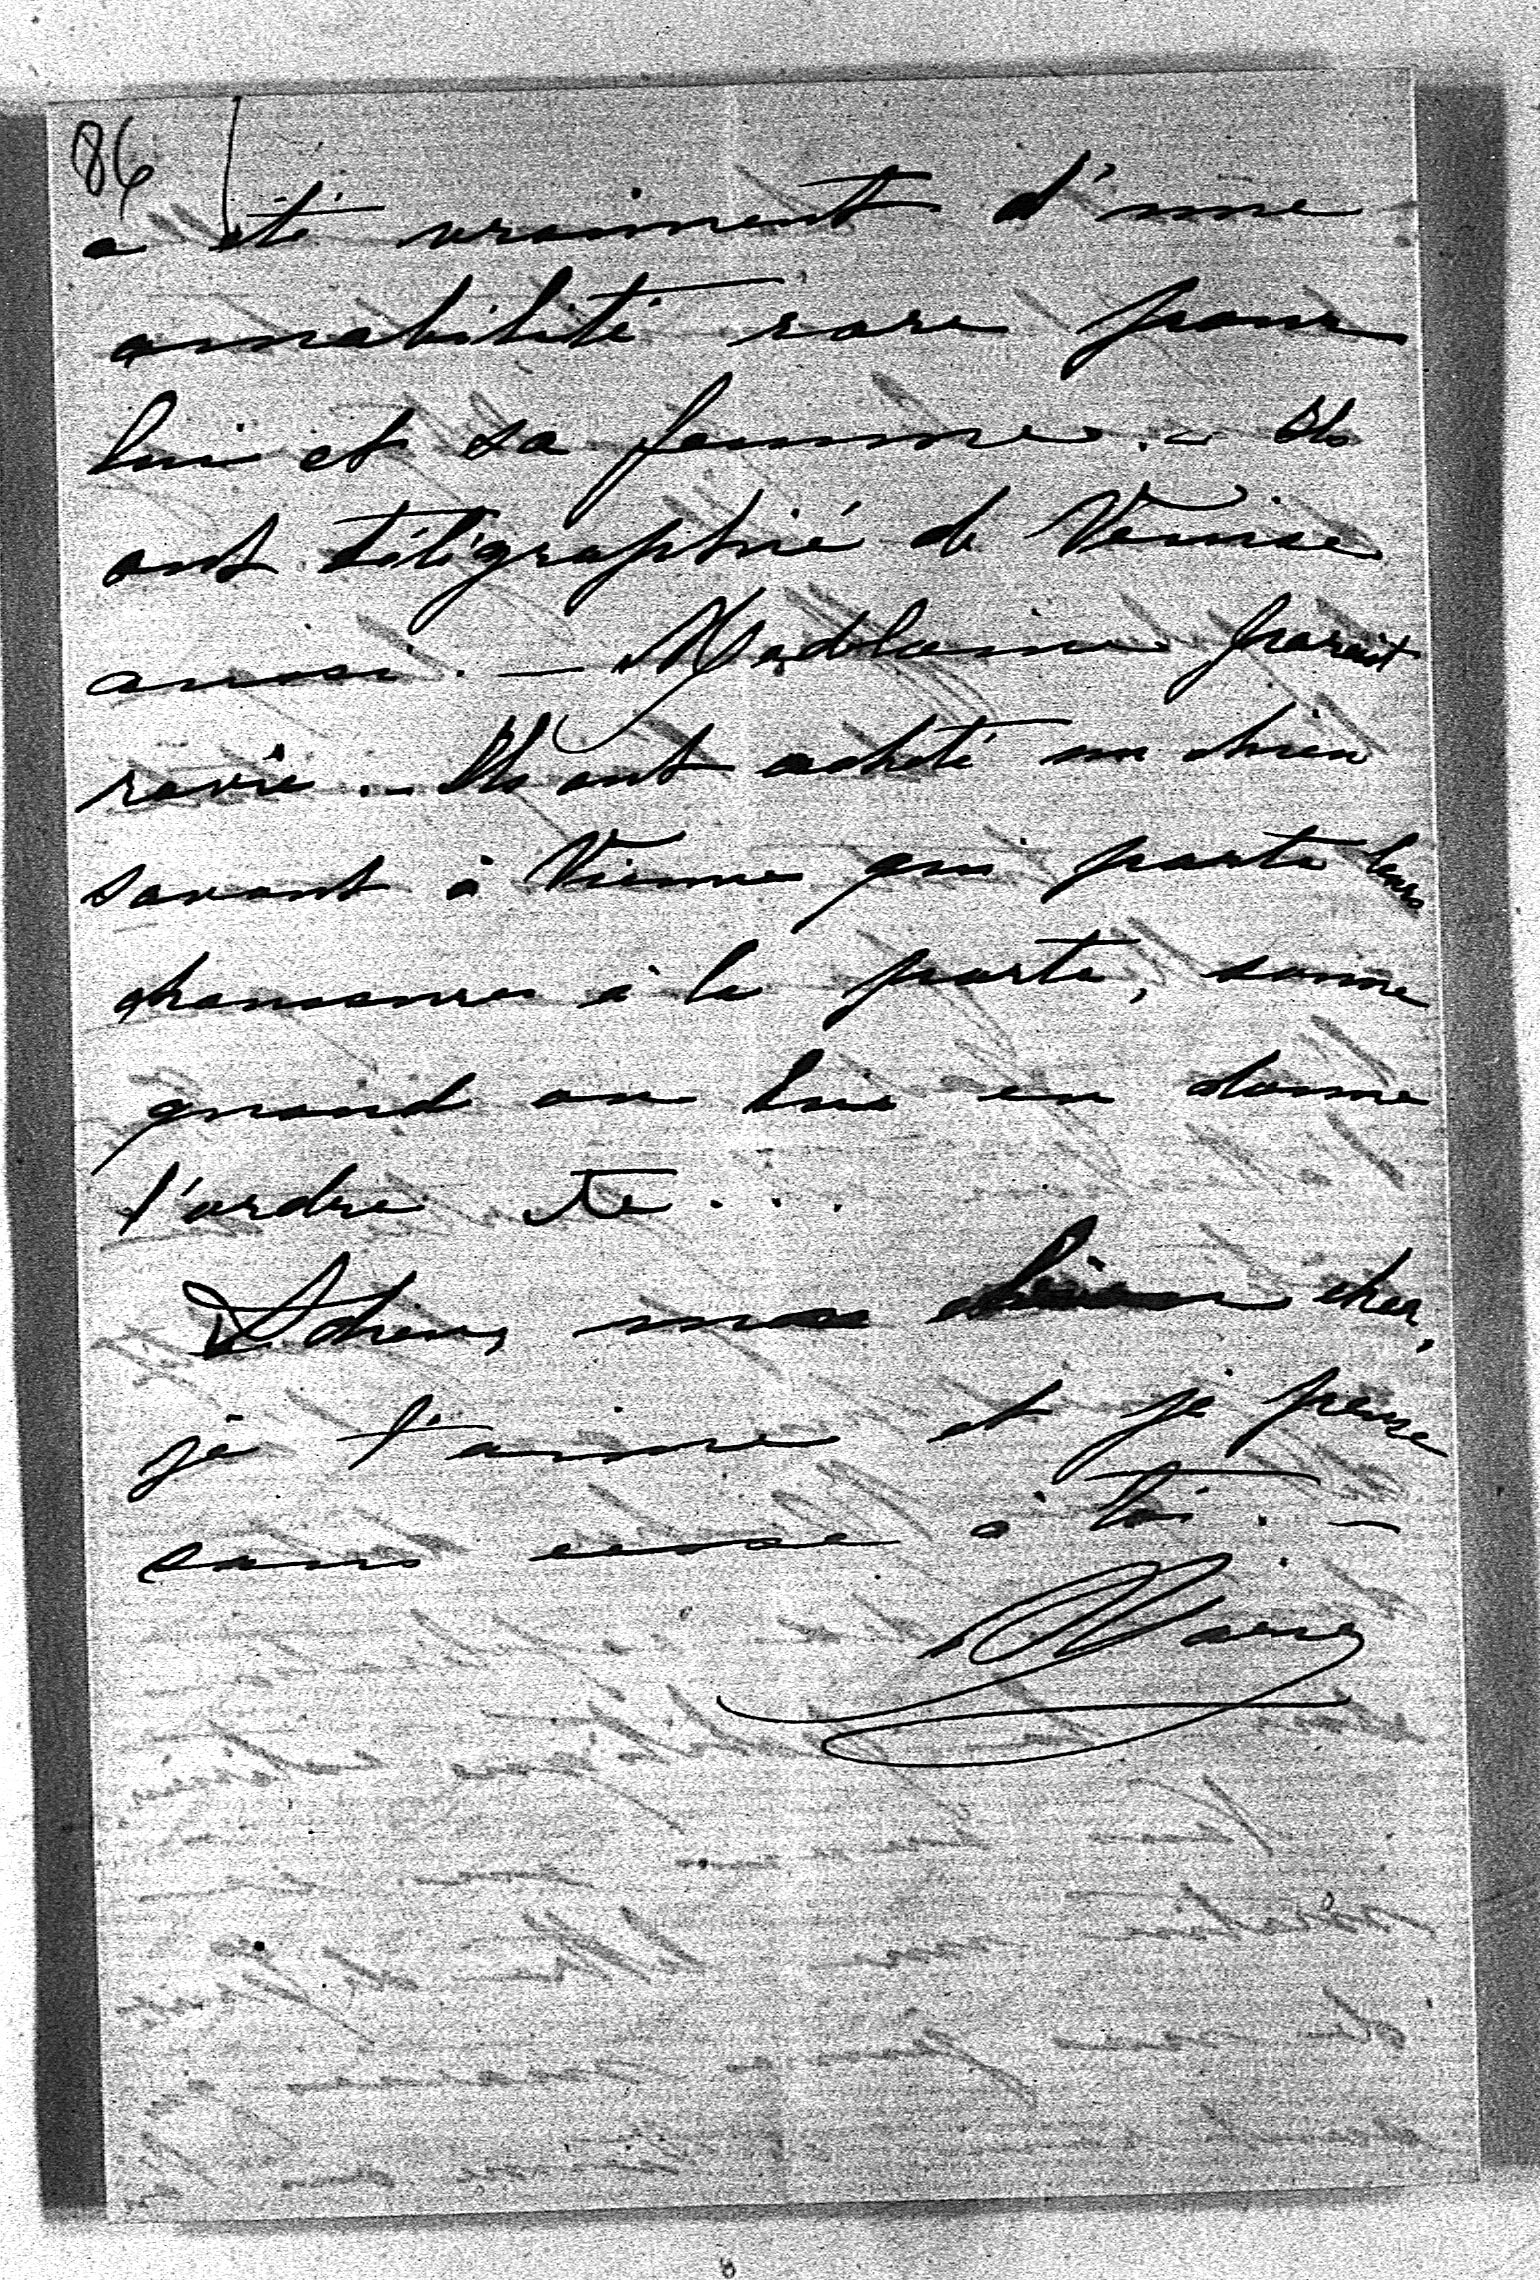 86
a été vraiment d'une
amabilité rare pour
lui et sa femme. — Ils
ont télégraphié de Venise
aussi. — Madelaine parait
ravie. — Ils ont acheté un chien
savant à Vienne qui porte leurs
chaussures à la porte, sonne
quand on lui en donne
l'ordre etc...
Adieu, mon bien cher,
je t'aime et je pense
sans cesse à toi. —
Marie